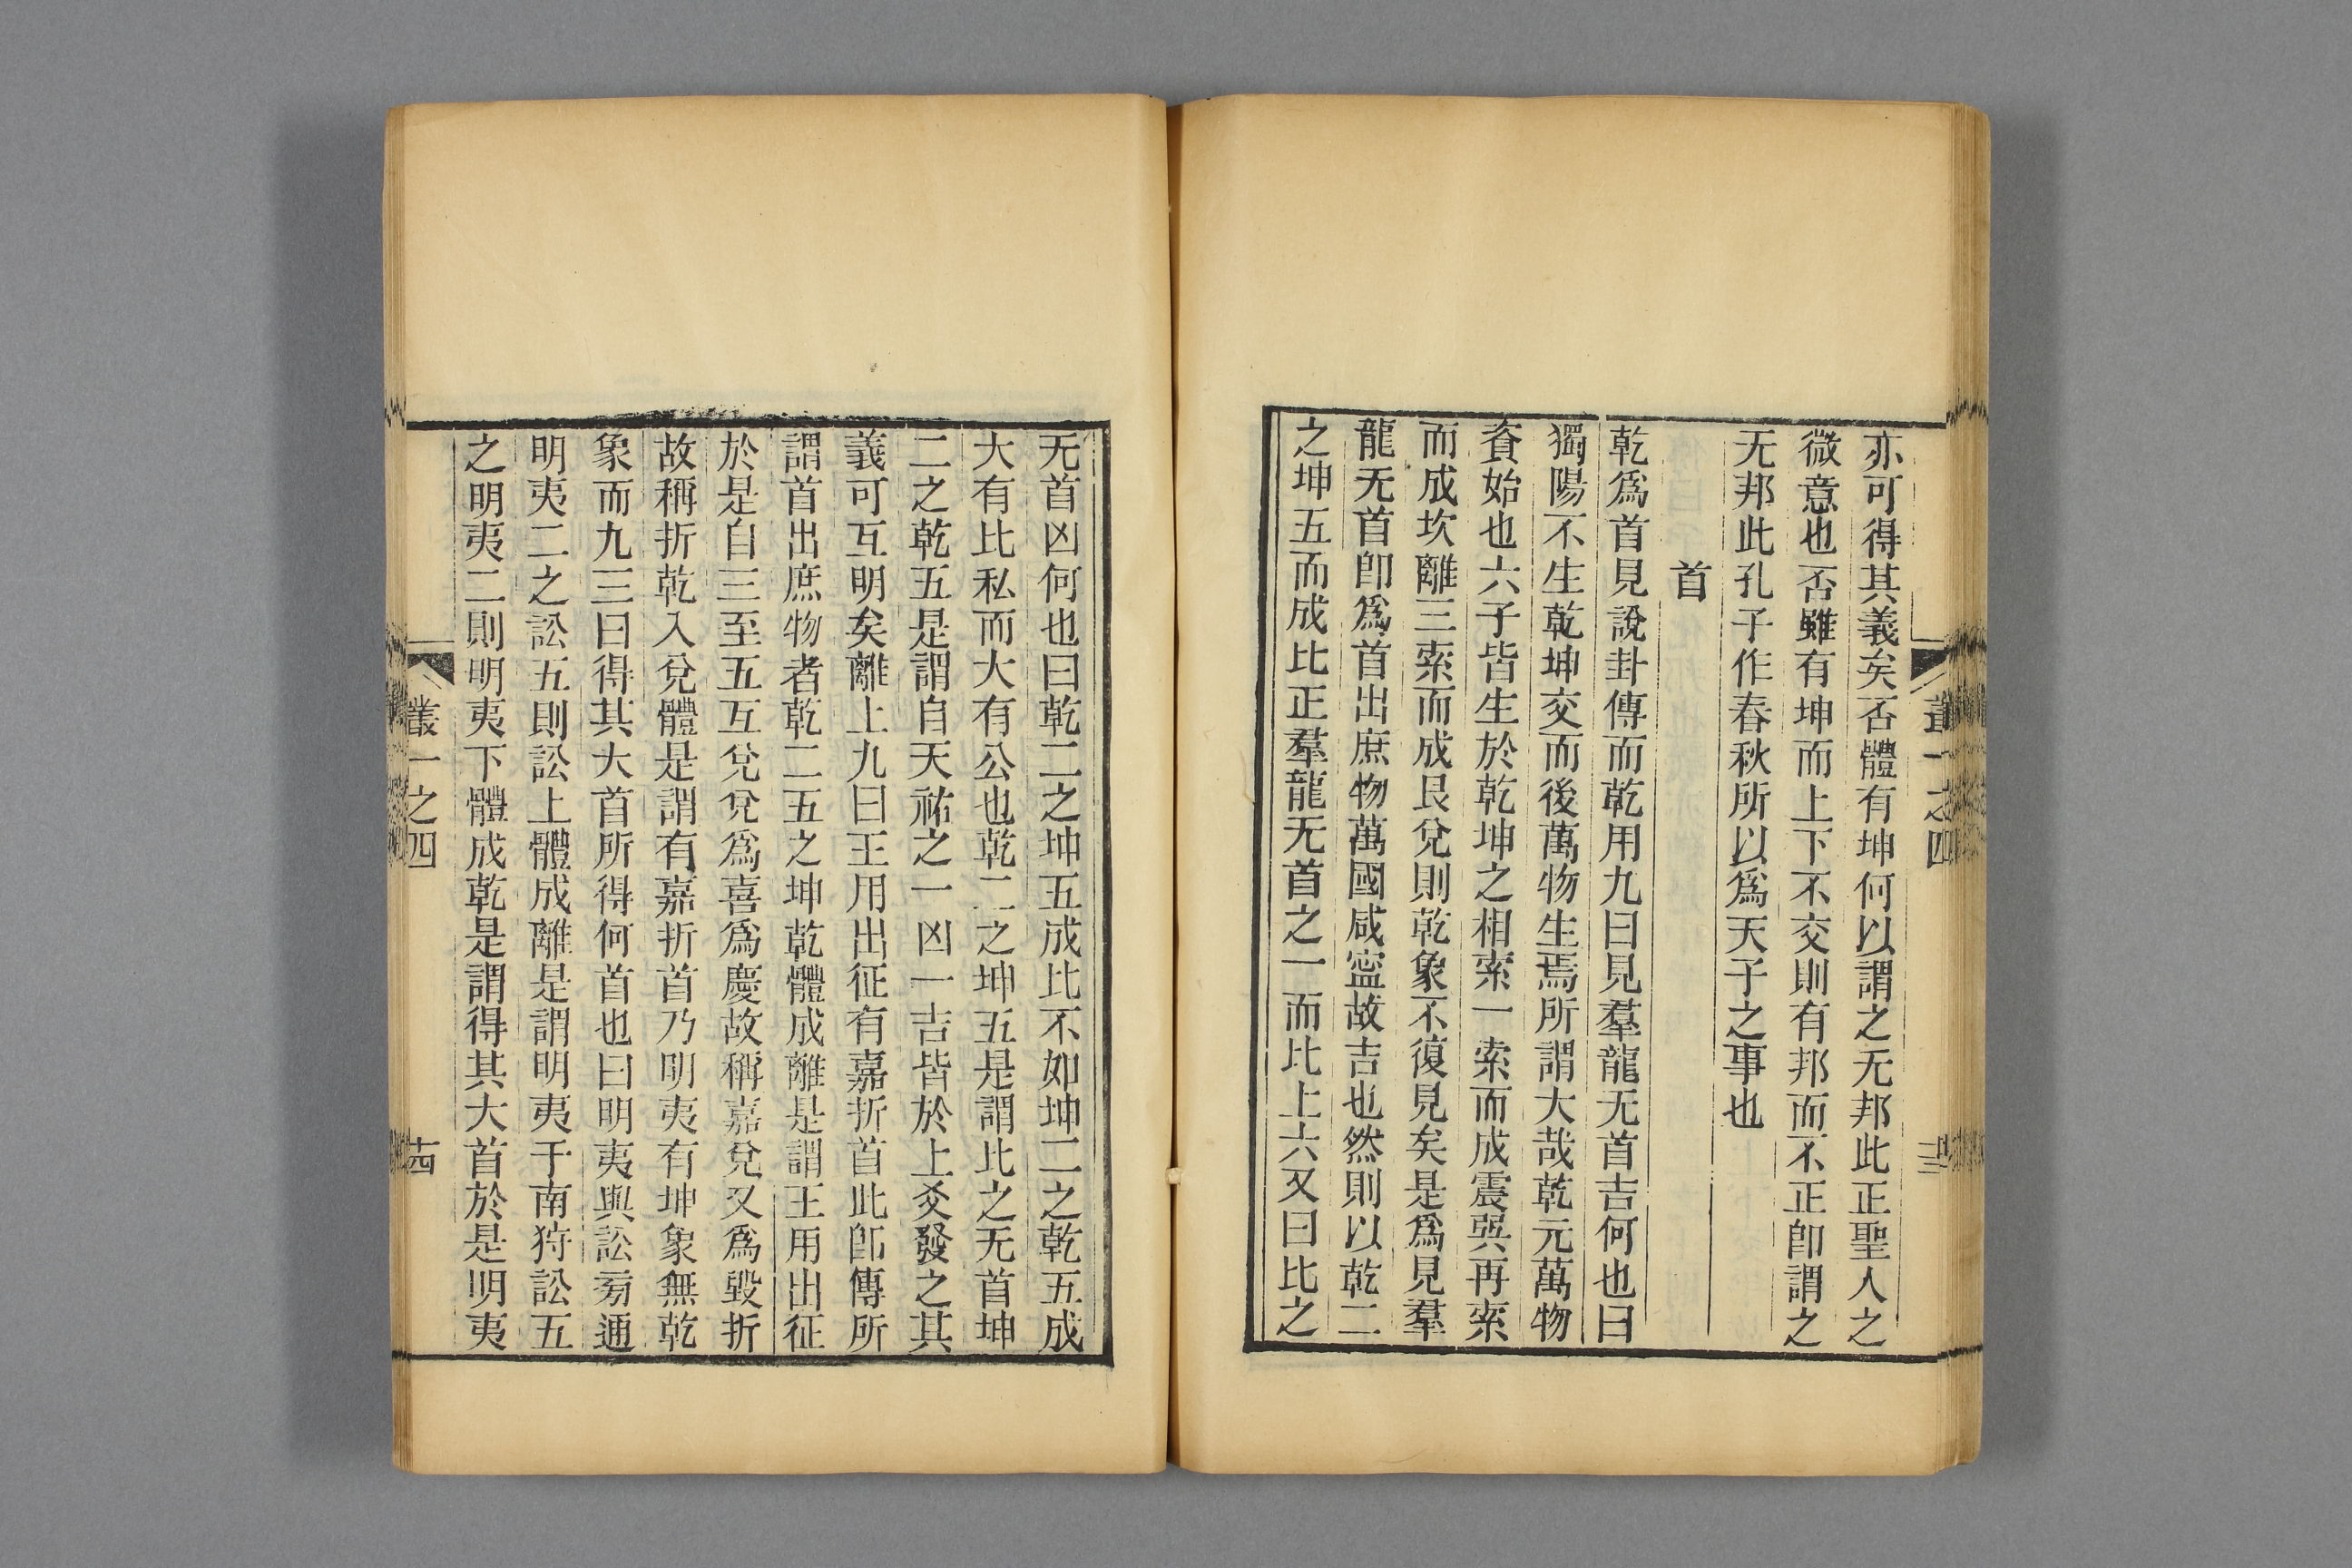 亦可得其義矣否體有坤何以謂之无邦此正聖人之
微意也否雖有坤而上下不交則有邦而不正卽謂之
无邦此孔子作春秋所以爲天子之事也
首
乾爲首見說卦傳而乾用九曰見羣龍无首吉何也曰
獨陽不生乾坤交而後萬物生焉所謂大哉乾元萬物
資始也六子皆生於乾坤之相索一索而成震巽再索
而成坎離三索而成艮兌則乾象不復見矣是爲見羣
龍无首卽爲首出庶物萬國咸寍故吉也然則以乾二
之坤五而成比正羣龍无首之一而比上六又曰比之
叢一之四
无首凶何也曰乾二之坤五成比不如坤二之乾五成
大有比私而大有公也乾二之坤五是謂比之无首坤
二之乾五是謂自天祐之一凶一吉皆於上爻發之其
義可互明矣離上九曰王用出征有嘉折首此卽傳所
謂首出庶物者乾二五之坤乾體成離是謂王用出征
於是自三至五互兌兌爲喜爲慶故稱嘉兌又爲毀折
故稱折乾入兌體是謂有嘉折首乃明夷有坤象無乾
象而九三曰得其大首所得何首也曰明夷與訟旁通
明夷二之訟五則訟上體成離是謂明夷于南狩訟五
之明夷二則明夷下體成乾是謂得其大首於是明夷
叢一之四
十四